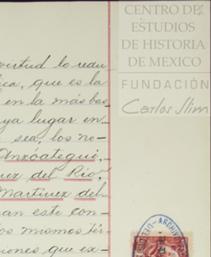 CENTRO DE
ESTUDIOS
DE HISTORIA
DE MEXICO
FUNDACIÓN
Carlos Slim
virtud lo redu
ica, que es la
en la más bas
ya lugar en
sea, los no-
Anzóategui,
ez del Río,
Martínez del
an este con-
os mismos tér
iones que ex-